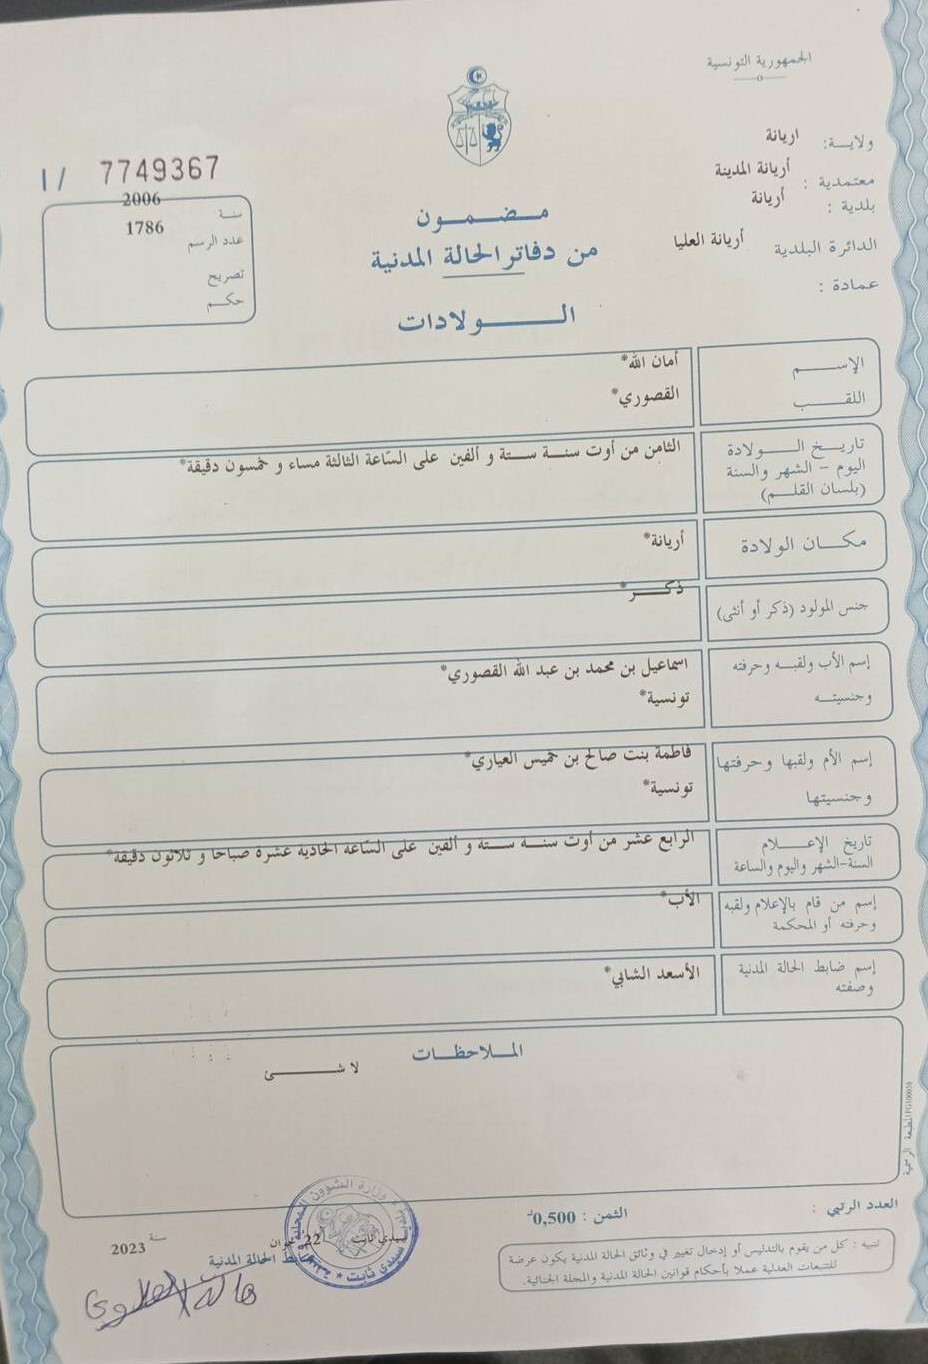 الجمهورية التونسية
ولايـــة: اريانة
معتمدية : أريانة المدينة
بلدية : أريانة
الدائرة البلدية أريانة العليا
عمادة :
I / 7749367
سنة 2006
عدد الرسم 1786
تصريح
حكـــم
مـضـمــون
من دفاتر الحالة المدنية
الـــــولادات
الإســـــم أمان الله*
اللقـــــب القصوري*
تاريـــخ الـــــولادة
اليوم - الشهر والسنة
(بلسان القلـــم)
الثامن من أوت سنـــة ستـــة و ألفين على السّاعة الثالثة مساء و خمسون دقيقة*
مكـــان الولادة أريانة*
جنس المولود (ذكر أو أنثى) ذكـــــر*
إسم الأب ولقبـــه وحرفته اسماعيل بن محمد بن عبد الله القصوري*
وجنسيتـــه تونسية*
إسم الأم ولقبها وحرفتها فاطمة بنت صالح بن خميس العياري*
وجنسيتها تونسية*
تاريخ الإعـــــلام
السنة-الشهر واليوم والساعة
الرابع عشر من أوت سنـــة ستـــه و ألفين على السّاعة الحادية عشرة صباحا و ثلاثون دقيقة*
إسم من قام بالإعلام ولقبه الأب*
وحرفته أو المحكمة
إسم ضابط الحالة المدنية الأسعد الشابي*
وصفته
المـــلاحظـــات
لا شـــــــئ
العدد الرتبي :
الثمن : 0,500د
تنبيه : كل من يقوم بالتدليس أو إدخال تغيير في وثائق الحالة المدنية يكون عرضة
للتتبعات العدلية عملا بأحكام قوانين الحالة المدنية والمجلة الجنائية.
سيدي ثابت 22 جوان سنة 2023
ضابط الحالة المدنية
وزارة الشؤون المحلية
سيدي ثابت